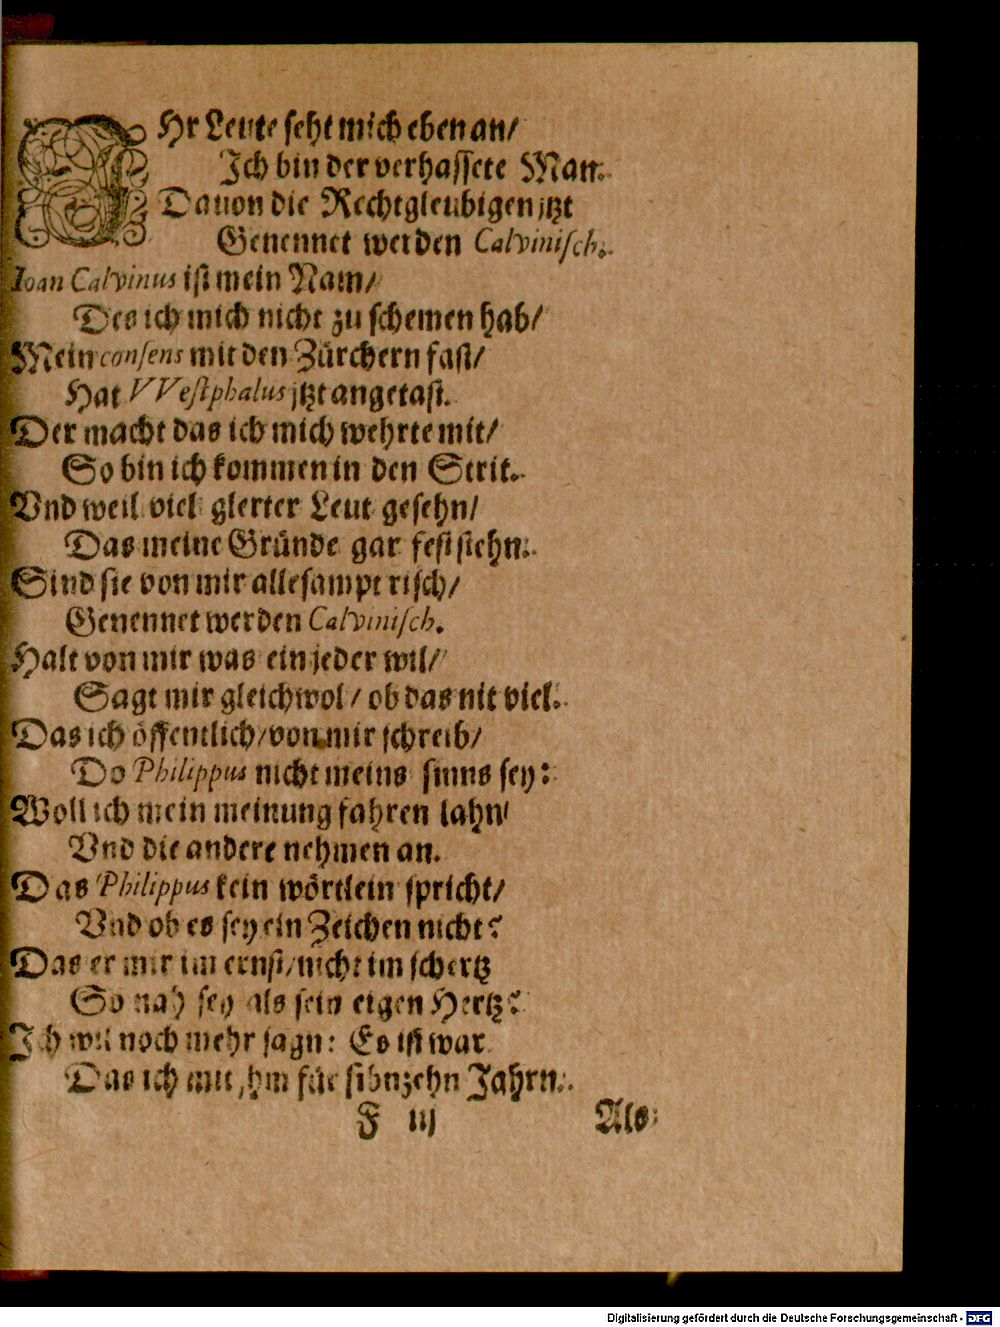 IHr Leute seht mich eben an/
Ich bin der verhassete Man.
Dauon die Rechtgleubigen jtzt
Genennet werden Calvinisch.
Ioan Calvinus ist mein Nam/
Des ich mich nicht zu schemen hab/
Mein consens mit den Zürchern fast/
Hat VVestphalus jtzt angetast.
Der macht das ich mich wehrte mit/
So bin ich kommen in den Strit.
Vnd weil viel glerter Leut gesehn/
Das meine Gründe gar fest stehn.
Sind sie von mir allesampt risch/
Genennet werden Calvinisch.
Halt von mir was ein jeder wil/
Sagt mir gleichwol/ ob das nit viel.
Das ich öffentlich/ von mir schreib/
Do Philippus nicht meins sinns sey:
Woll ich mein meinung fahren lahn/
Vnd die andere nehmen an.
Das Philippus kein wörtlein spricht/
Vnd ob es sey ein Zeichen nicht?
Das er mir im ernst/ nicht im schertz
So nah sey als sein eigen Hertz?
Ich wil noch mehr sagn: Es ist war
Das ich mit jhm für sibnzehn Jahrn.
F iij Als
Digitalisierung gefördert durch die Deutsche Forschungsgemeinschaft - DFG